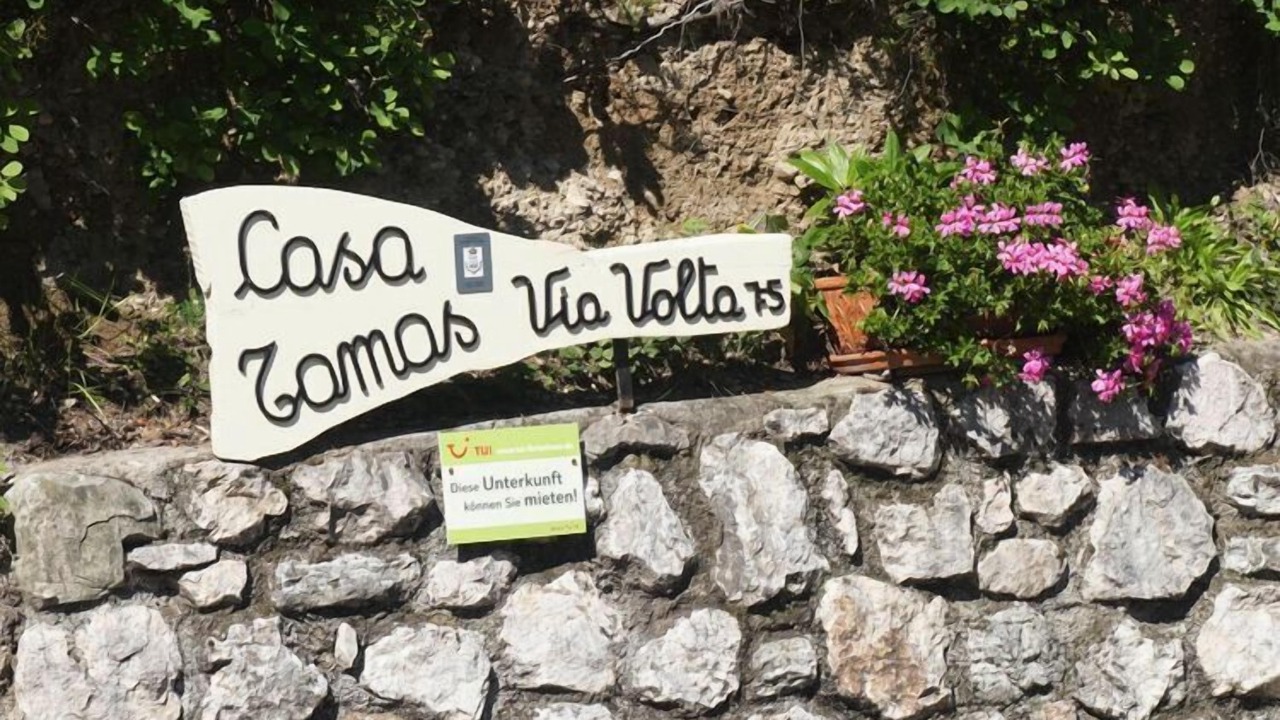 Casa
Tomas
Via Volta 75
TUI
Diese Unterkunft
können Sie mieten!